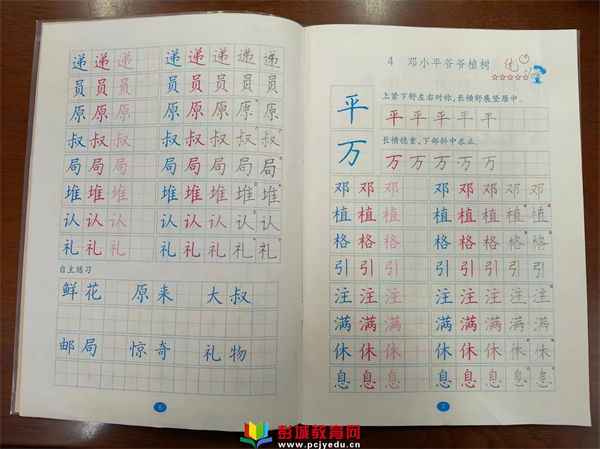 递 递 递 递 递 递 递 递
员 员 员 员 员 员 员 员
原 原 原 原 原 原 原 原
叔 叔 叔 叔 叔 叔 叔 叔
局 局 局 局 局 局 局 局
堆 堆 堆 堆 堆 堆 堆 堆
认 认 认 认 认 认 认 认
礼 礼 礼 礼 礼 礼 礼 礼
自主练习
鲜花 原来 大叔
邮局 惊奇 礼物
6
4 邓小平爷爷植树 优
☆☆☆☆☆
平
上紧下舒左右对称,长横舒展竖居中。
平 平 平 平 平
万
长横稳重,下部斜中求正。
万 万 万 万 万
邓 邓 邓 邓 邓 邓 邓 邓
植 植 植 植 植 植 植 植
格 格 格 格 格 格 格 格
引 引 引 引 引 引 引 引
注 注 注 注 注 注 注 注
满 满 满 满 满 满 满 满
休 休 休 休 休 休 休 休
息 息 息 息 息 息 息 息
7
彭城教育网
www.pcjyedu.cn